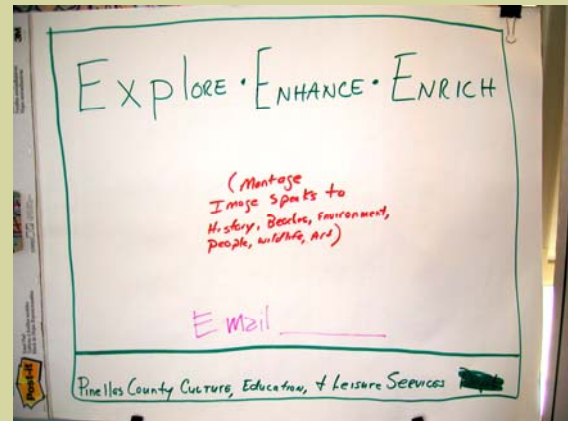 Explore • Enhance • Enrich
(Montage
Image speaks to
History, Beaches, Environment,
people, wildlife, Art)
E mail
Pinellas County Culture, Education, + Leisure Services
Post-it
3M